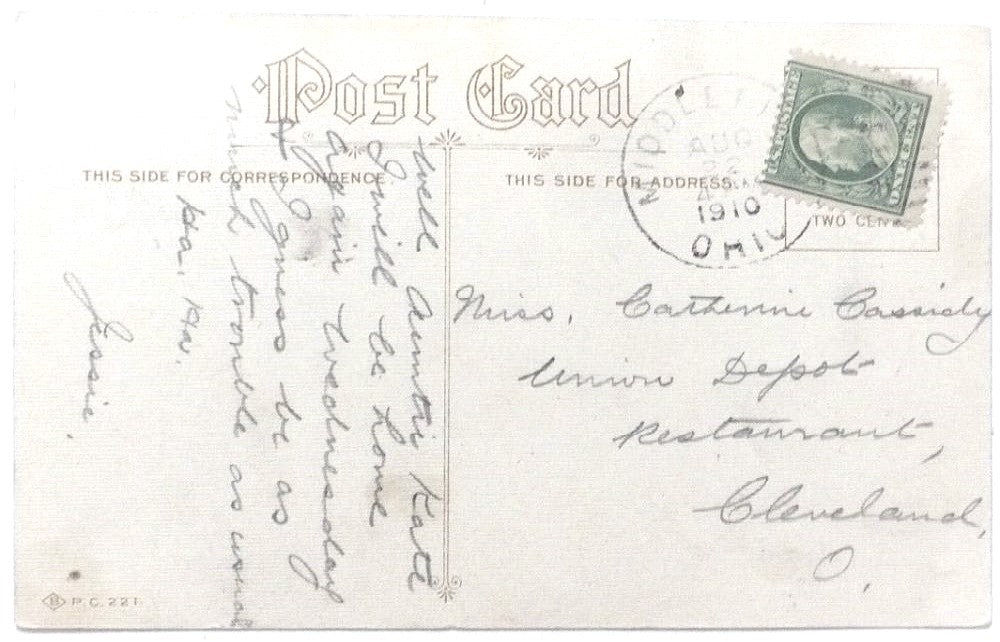 Post Card
THIS SIDE FOR CORRESPONDENCE.
THIS SIDE FOR ADDRESS.
AUG
22
1910
OHIO
TWO CEN
Well Auntie Kate
I will be home
again Wednesday
I guess be as
much trouble as usual
Ha, Ha.
Jessie.
Miss. Catherine Cassidy
Union Depot
Restaurant,
Cleveland,
O.
B P.C. 221